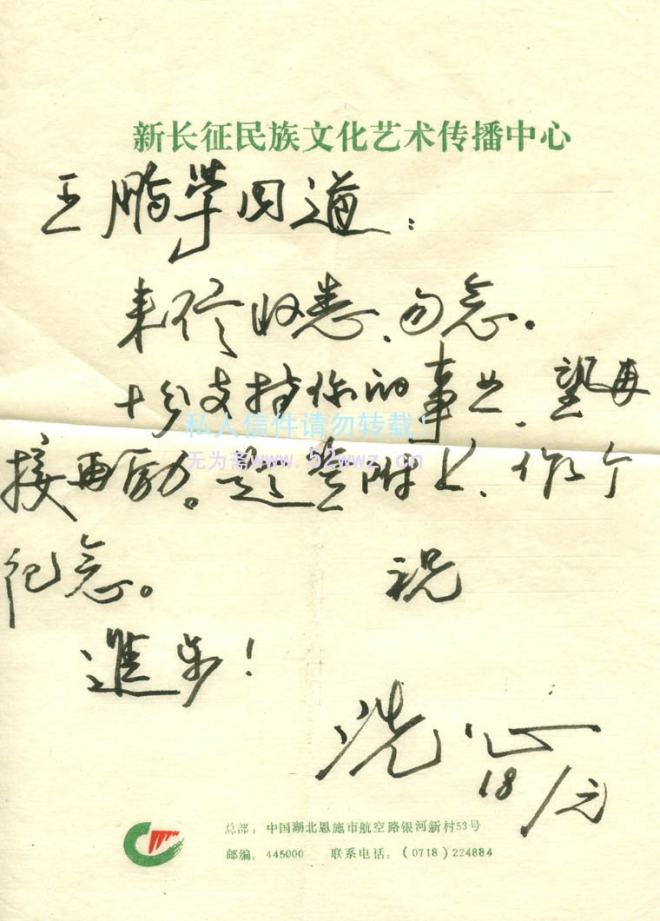 新长征民族文化艺术传播中心
王鹏学同道：
来信收悉、勿念。
十分支持你的事业、望再
私人信件请勿转载！
无为斋www.52wwz.cn
接再励。题签附上、作个
纪念。
祝
進步！
冼心
18/元
总部：中国湖北恩施市航空路银河新村53号
邮编：445000 联系电话：（0718）224884